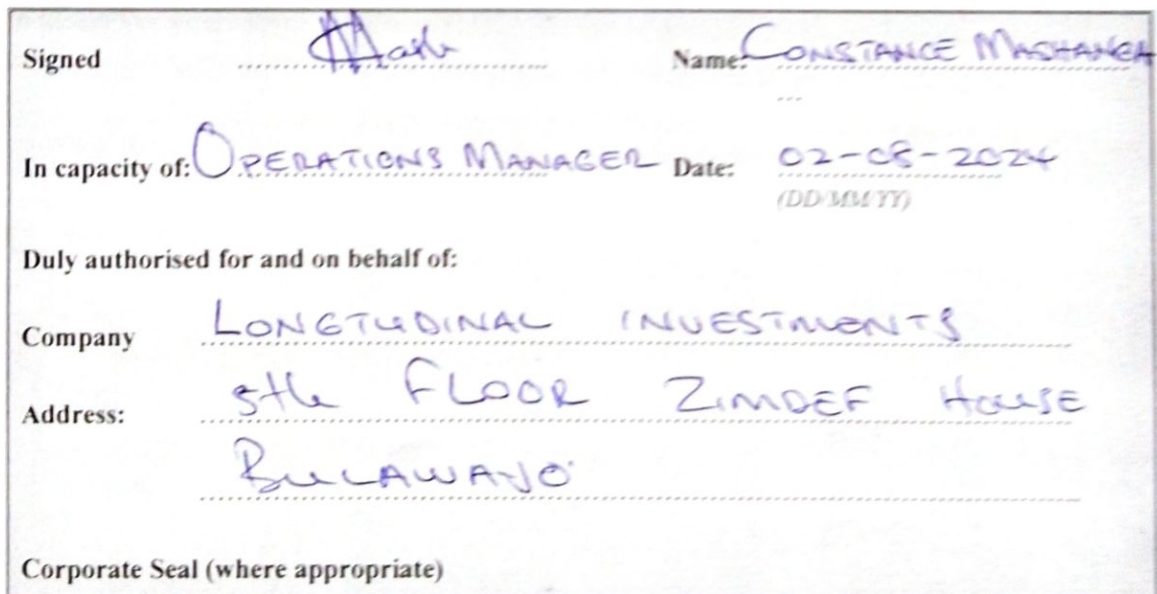 Signed Mash Name: CONSTANCE MASHANGA
...
In capacity of: OPERATIONS MANAGER Date: 02-08-2024
(DD/MM/YY)
Duly authorised for and on behalf of:
Company LONGTUDINAL INVESTMENTS
Address: 5th FLOOR ZIMDEF HOUSE
BULAWAYO
Corporate Seal (where appropriate)